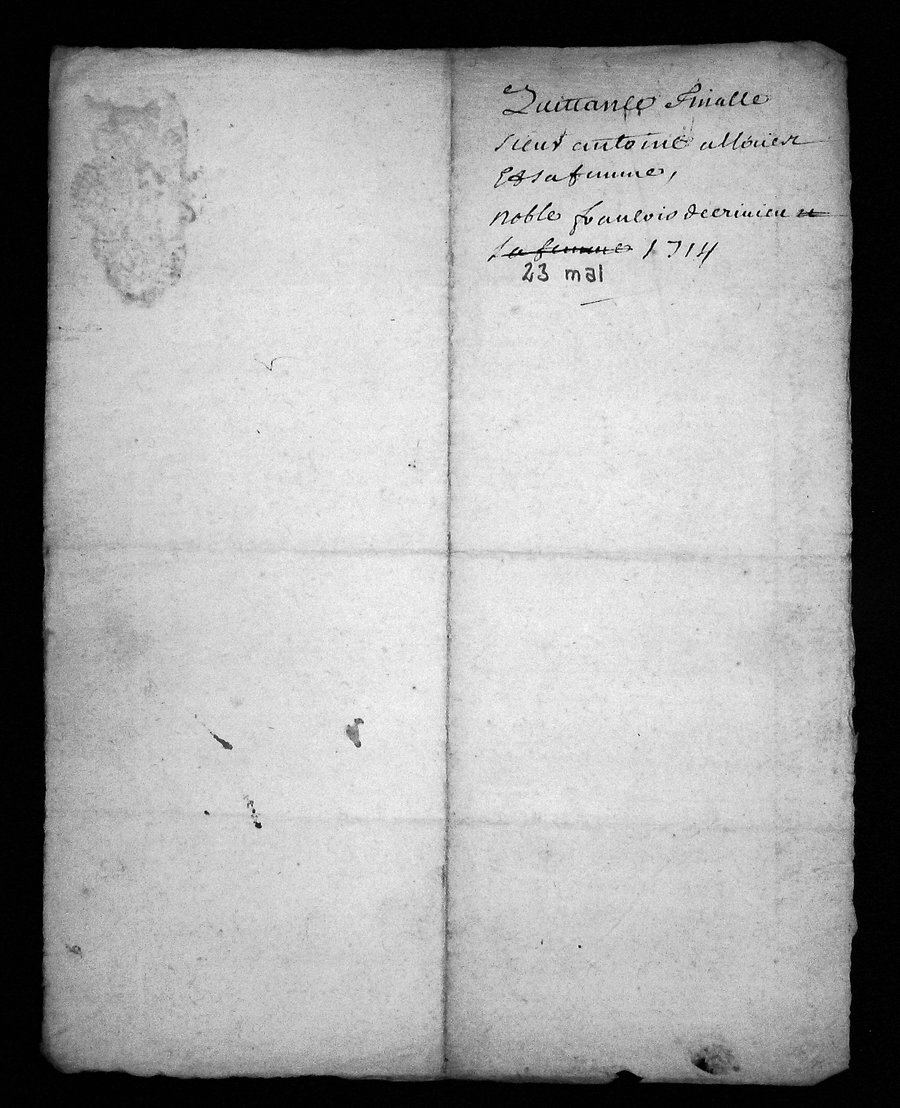 Quittance Finalle
sieur antoine allouier
Et sa femme,
noble francois decrinieu et
sa femme 1714
23 mai